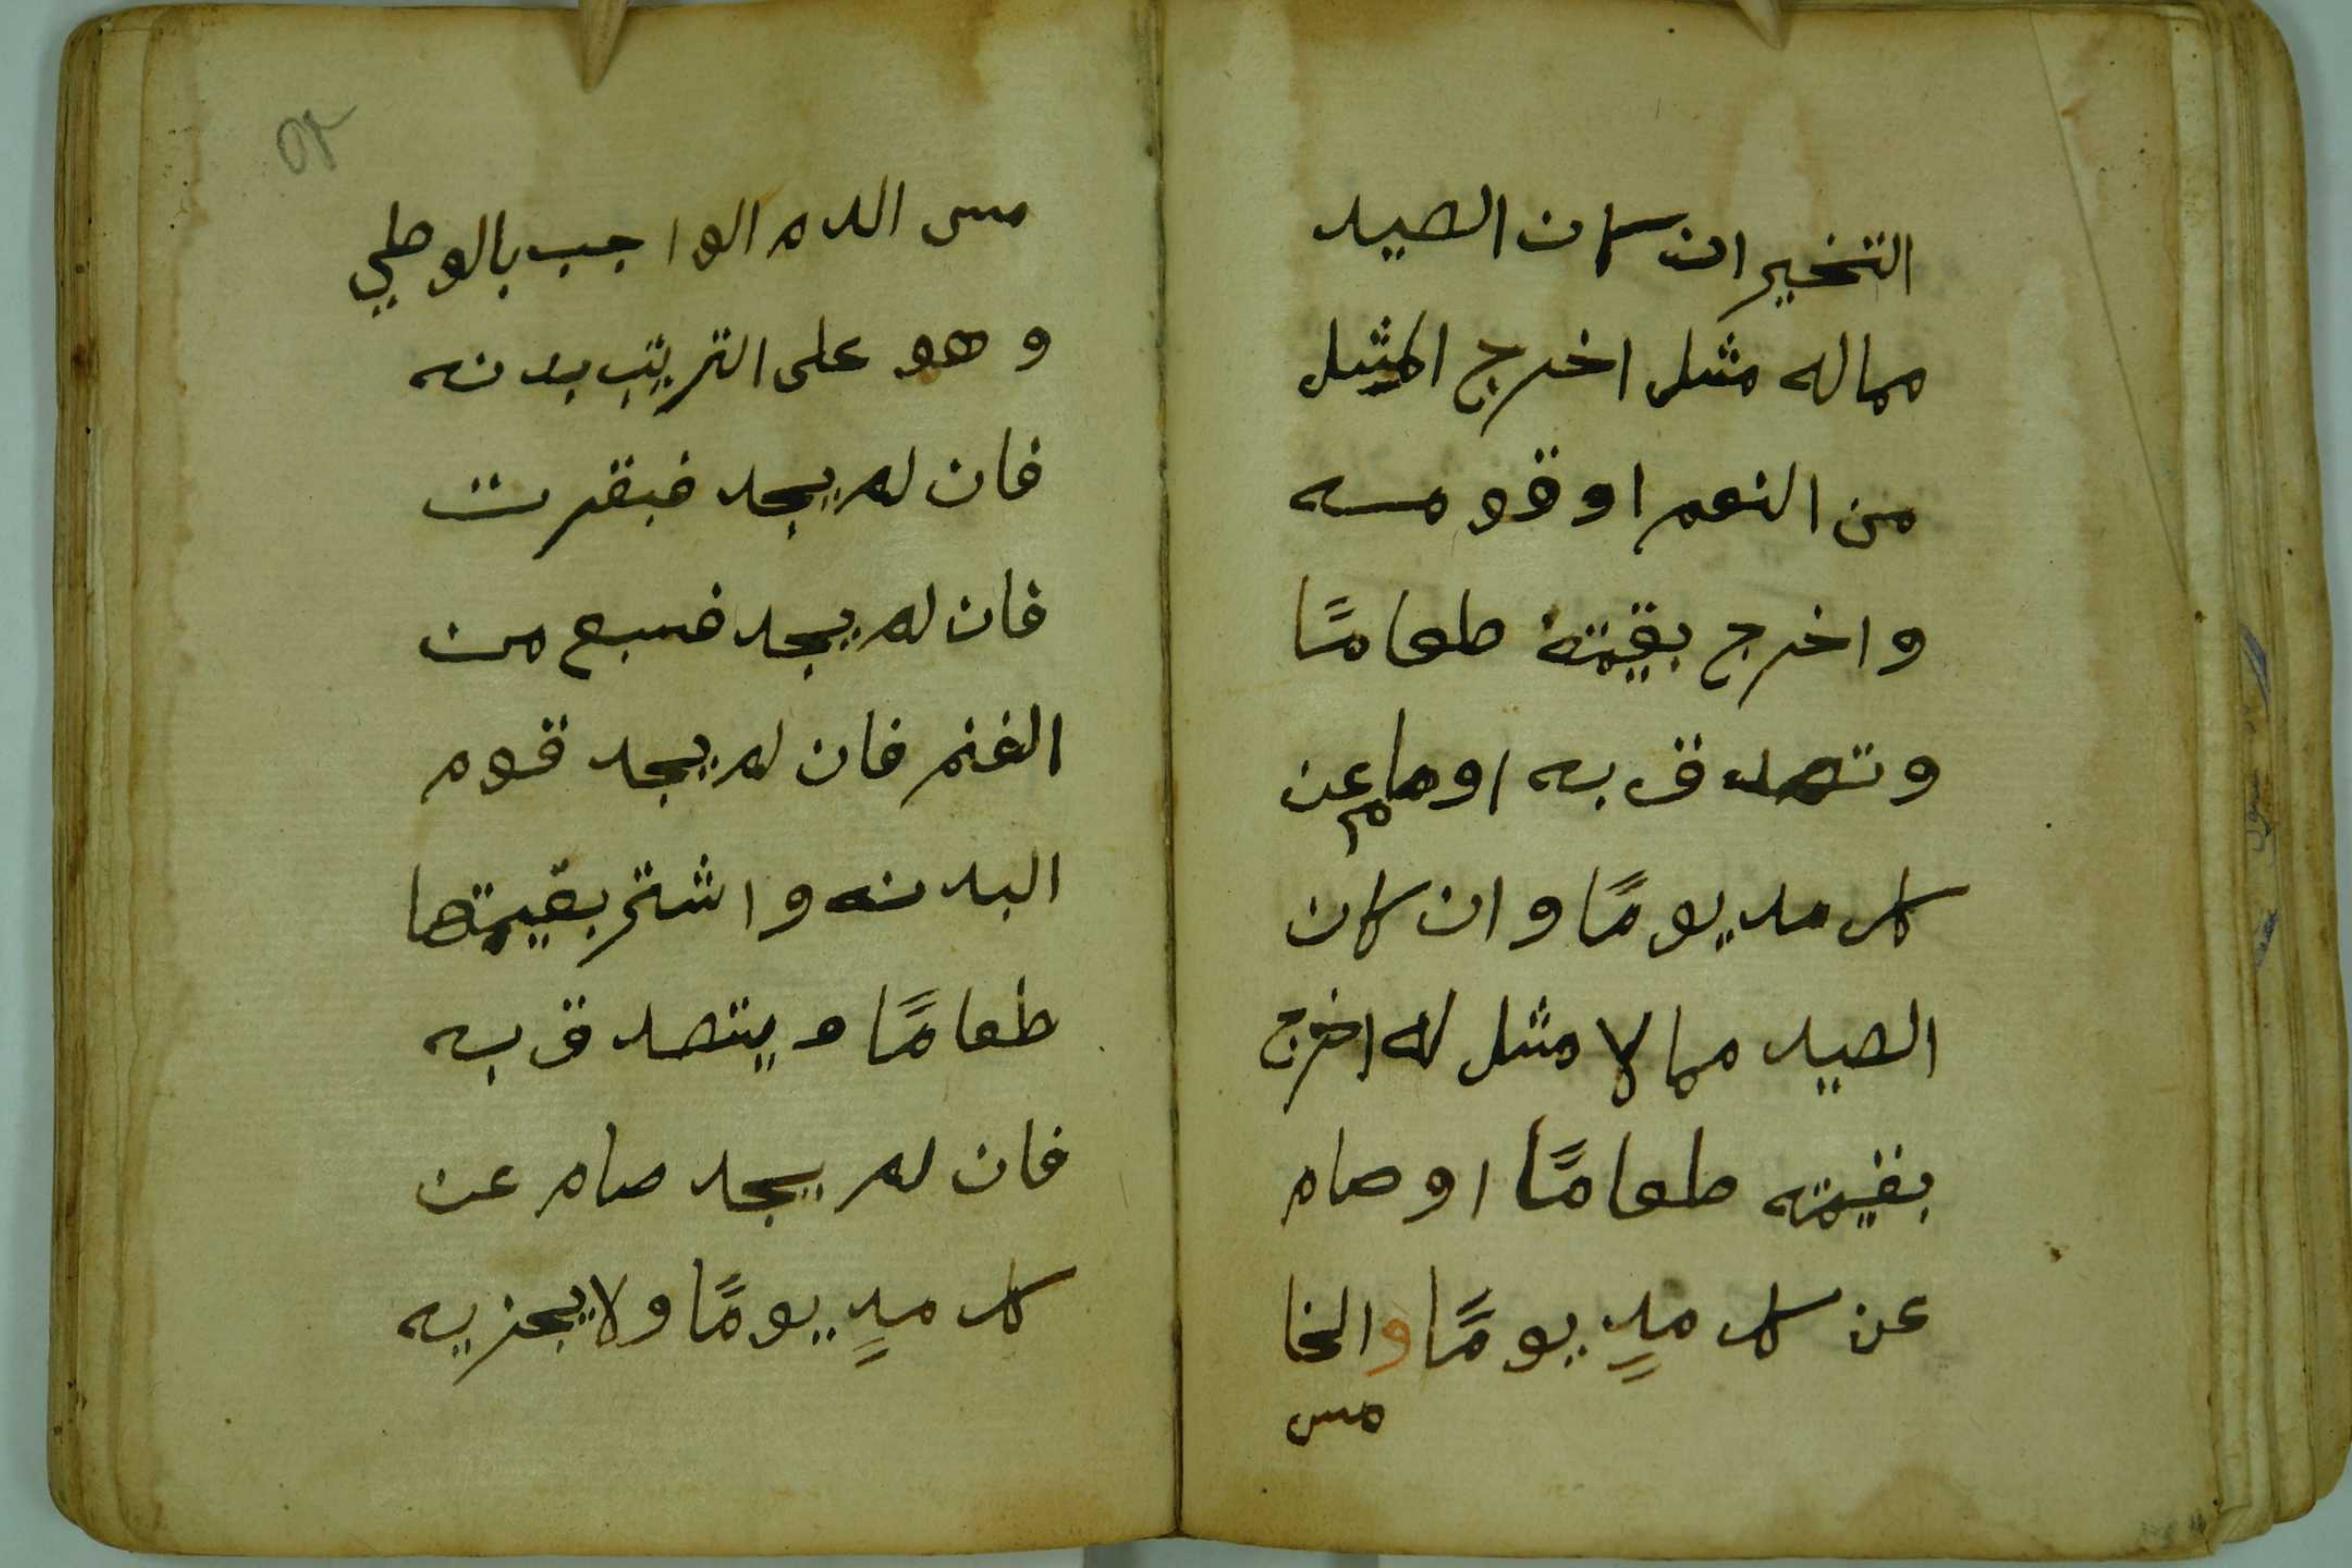 التخيير ان كان الصيد
مماله مثل اخرج المثل
من النعم او قومه
واخرج بقيمته طعامًا
وتصدق به اوصام عن
كل مد يومًا وان كان
الصيد مما لا مثل له اخرج
بقيمته طعامًا اوصام
عن كل مدٍ يومًا والخا
مس
٥٢
مس الدم الواجب بالوطي
وهو على الترتيب بدنه
فان لم يجد فبقرت
فان لم يجد فسبع من
الغنم فان لم يجد قوم
البدنه واشتر بقيمتها
طعامًا ويتصدق به
فان لم يجد صام عن
كل مدٍ يومًا ولا يجزيه